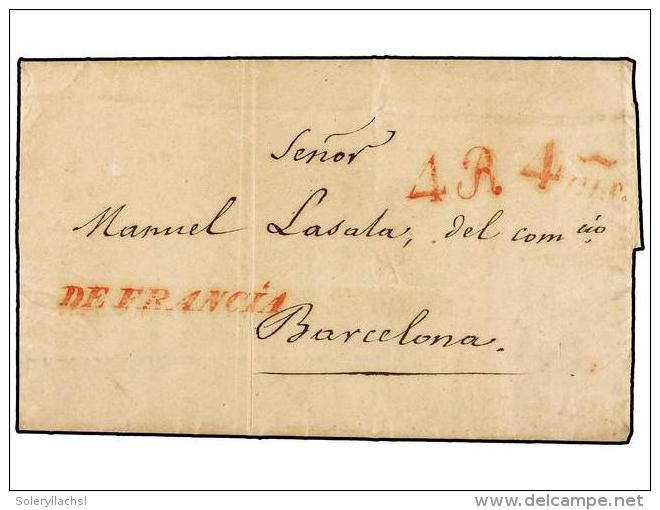 Señor
4 R 4
Manuel Lasala, del comcio
DE FRANCÍA
Barcelona.
Soleryllachsl
©delcampe.net